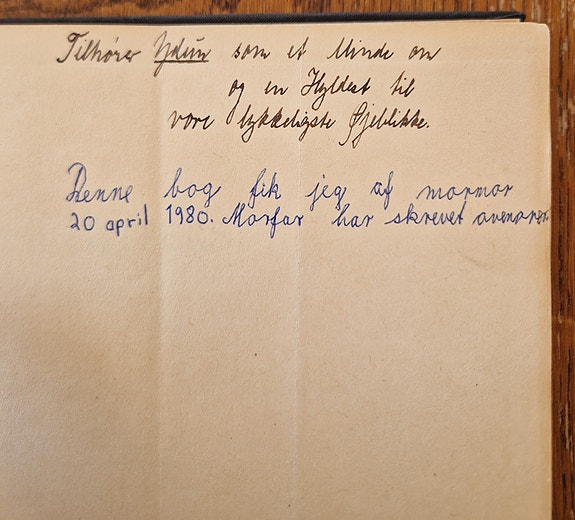 Tilhører Ydun som et Minde om
og en Hyldest til
vore lykkeligste Øjeblikke.
Denne bog fik jeg af mormor
20 april 1980. Morfar har skrevet